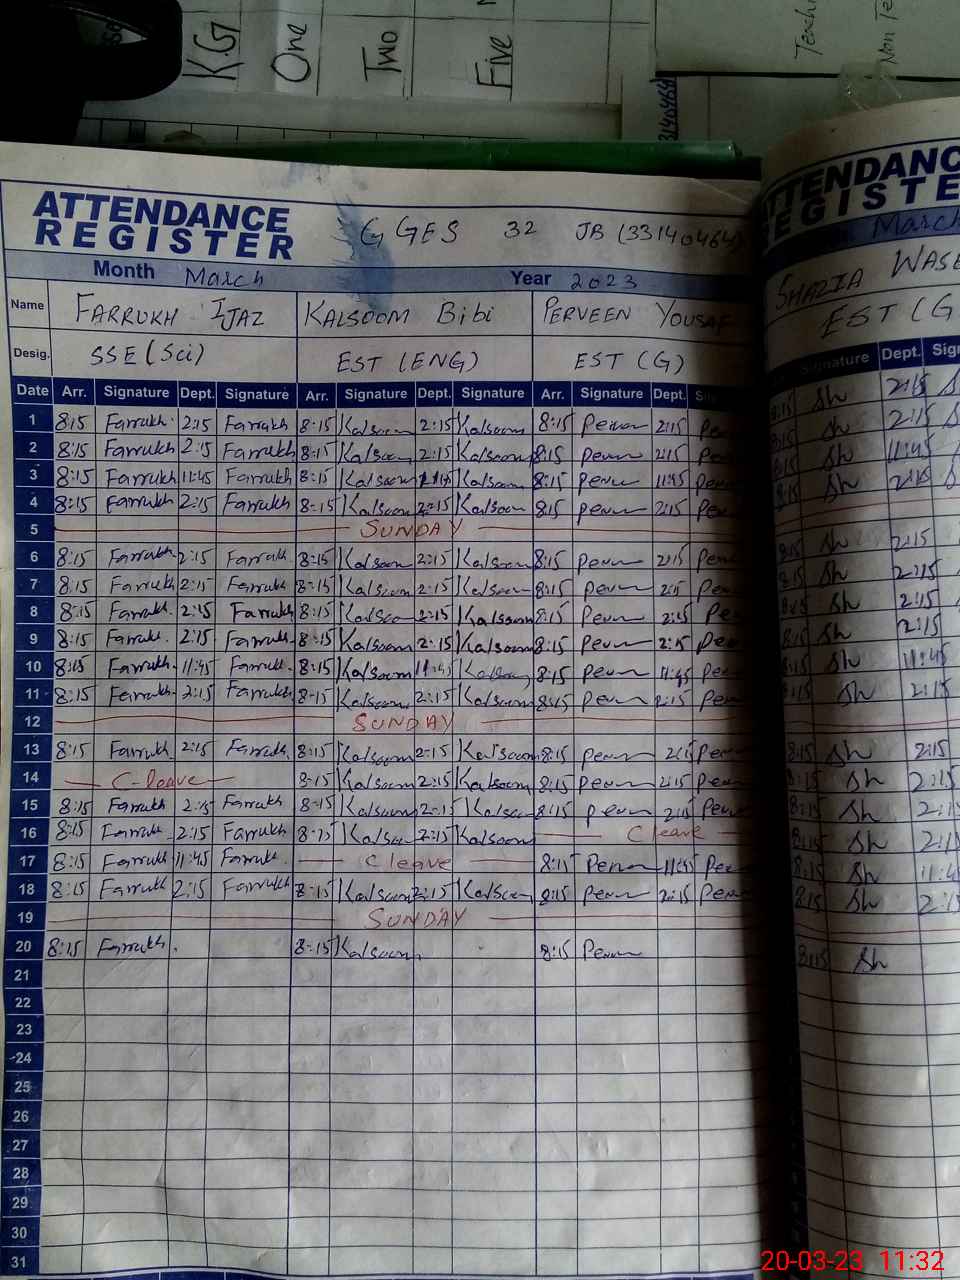 K.G
One
Two
Five
Teach
Non Te
31140464
ATTENDANCE
REGISTER
GGES 32 JB (33140464)
Month March Year 2023
Name FARRUKH IJAZ KALSOOM Bibi PERVEEN YOUSAF
Desig. SSE (Sci) EST (ENG) EST (G)
Date Arr. Signature Dept. Signature Arr. Signature Dept. Signature Arr. Signature Dept. Si
1 8:15 Farrukh 2:15 Farrukh 8:15 Kalsoom 2:15 Kalsoom 8:15 Perven 2:15 Pe
2 8:15 Farrukh 2:15 Farrukh 8:15 Kalsoom 2:15 Kalsoom 8:15 Perven 2:15 Per
3 8:15 Farrukh 11:45 Farrukh 8:15 Kalsoom Kalsoom 8:15 Perven 11:45 Per
4 8:15 Farrukh 2:15 Farrukh 8:15 Kalsoom 2:15 Kalsoom 8:15 Perven 2:15 Per
5 SUNDAY
6 8:15 Farrukh 2:15 Farrukh 8:15 Kalsoom 2:15 Kalsoom 8:15 Perven 2:15 Per
7 8:15 Farrukh 2:15 Farrukh 8:15 Kalsoom 2:15 Kalsoom 8:15 Perven 2:15 Per
8 8:15 Farrukh 2:15 Farrukh 8:15 Kalsoom 2:15 Kalsoom 8:15 Perven 2:15 Pe
9 8:15 Farrukh 2:15 Farrukh 8:15 Kalsoom 2:15 Kalsoom 8:15 Perven 2:15 Per
10 8:15 Farrukh 11:45 Farrukh 8:15 Kalsoom 11:45 8:15 Perven 11:45 Per
11 8:15 Farrukh 2:15 Farrukh 8:15 Kalsoom 2:15 Kalsoom 8:15 Perven 2:15 Per
12 SUNDAY
13 8:15 Farrukh 2:15 Farrukh 8:15 Kalsoom 2:15 Kalsoom 8:15 Perven 2:15 Per
14 C-leave 8:15 Kalsoom 2:15 Kalsoom 8:15 Perven 2:15 Per
15 8:15 Farrukh 2:15 Farrukh 8:15 Kalsoom 2:15 Kalsoom 8:15 Perven 2:15 Per
16 8:15 Farrukh 2:15 Farrukh 8:15 Kalsoom 2:15 Kalsoom C leave
17 8:15 Farrukh 11:45 Farrukh C leave 8:15 Perven 11:45 Per
18 8:15 Farrukh 2:15 Farrukh 8:15 Kalsoom 2:15 Kalsoom 8:15 Perven 2:15 Per
19 SUNDAY
20 8:15 Farrukh 8:15 Kalsoom 8:15 Perven
21
22
23
24
25
26
27
28
29
30
31
ATTENDANC
REGISTE
March
SHAZIA WASE
EST (G
Signature Dept. Sig
8:15 Sh 2:15
8:15 Sh 2:15
8:15 Sh 11:45
8:15 Sh 2:15
8:15 Sh 2:15
8:15 Sh 2:15
8:15 Sh 2:15
8:15 Sh 2:15
8:15 Sh 11:45
8:15 Sh 2:15
8:15 Sh 2:15
8:15 Sh 2:15
8:15 Sh 2:1
8:15 Sh 2:1
8:15 Sh 11:4
8:15 Sh 2:1
8:15 Sh
20-03-23 11:32